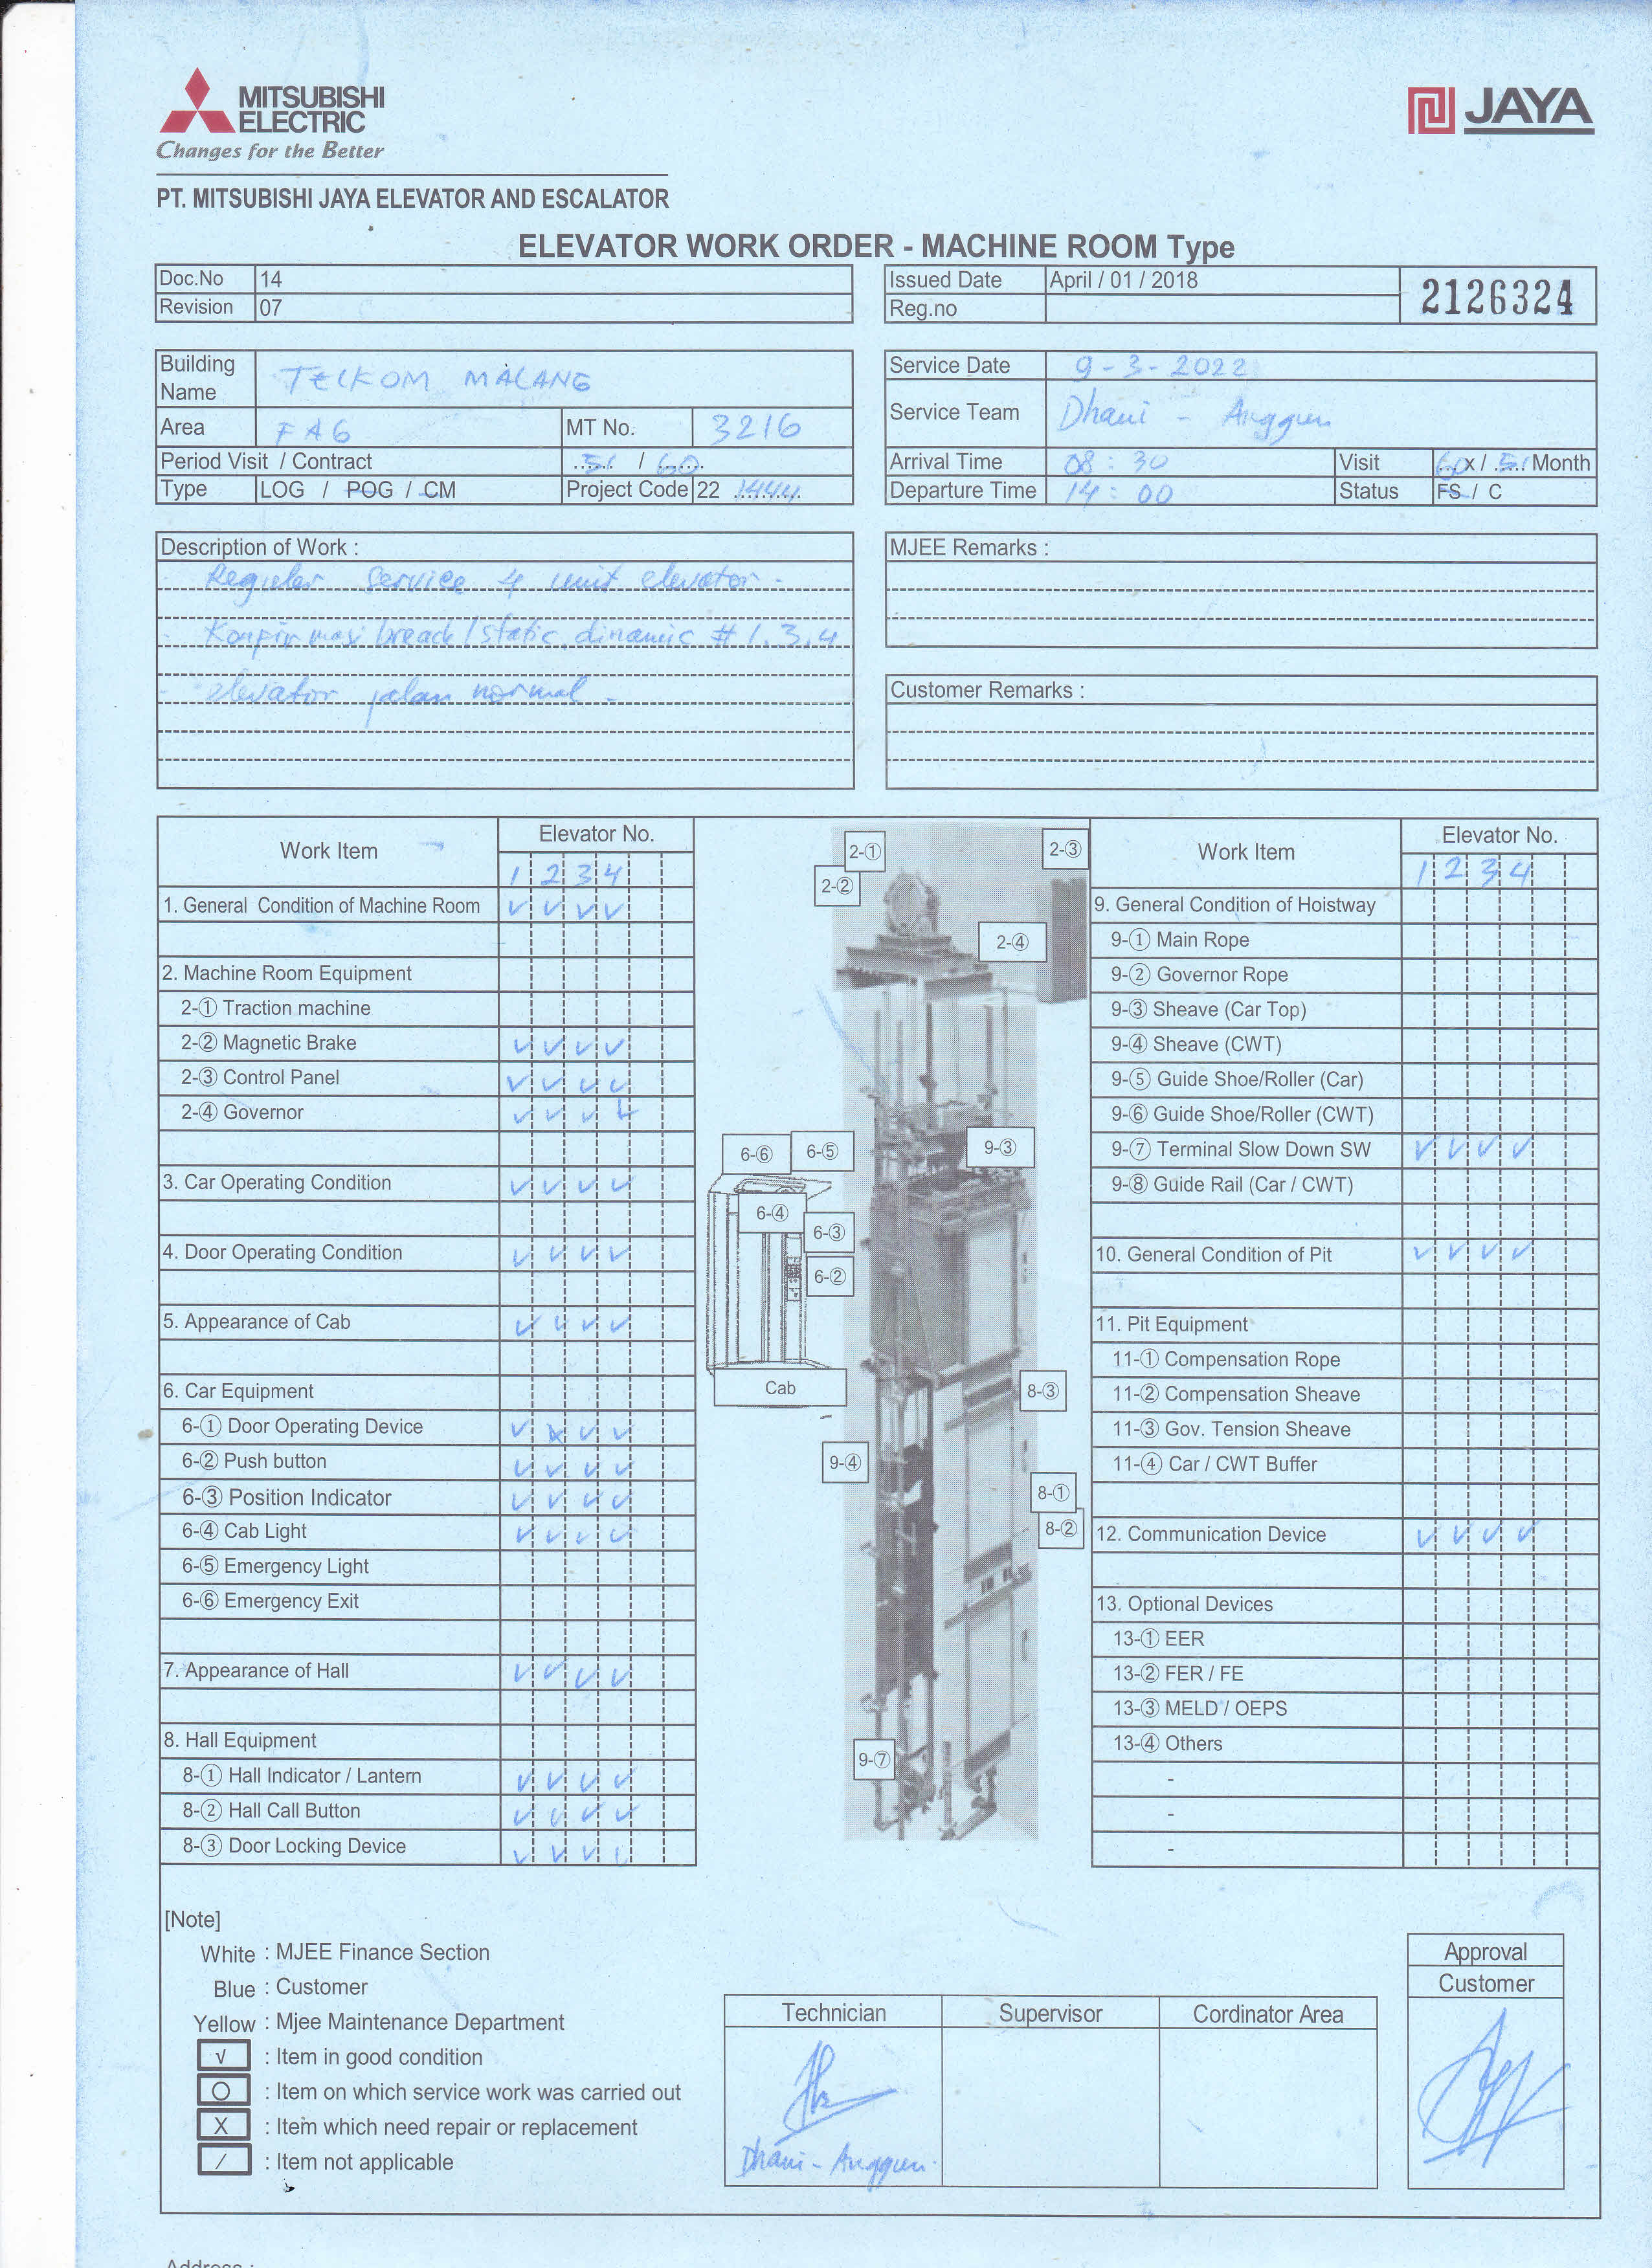 MITSUBISHI
ELECTRIC
Changes for the Better
JAYA
PT. MITSUBISHI JAYA ELEVATOR AND ESCALATOR
ELEVATOR WORK ORDER - MACHINE ROOM Type
Doc.No 14
Revision 07
Issued Date April / 01 / 2018
Reg.no
2126324
Building Name TELKOM MALANG
Area FA6 MT No. 3216
Period Visit / Contract 51 / 60
Type LOG / POG / CM Project Code 22 1444
Service Date 9-3-2022
Service Team Dhani - Anggun
Arrival Time 08:30 Visit 60 x / 51 Month
Departure Time 14:00 Status FS / C
Description of Work :
Reguler Service 4 unit elevator -
- Konfirmasi break/static, dinamic # 1.3.4
- elevator jalan normal -
MJEE Remarks :
Customer Remarks :
Work Item Elevator No.
1 2 3 4
1. General Condition of Machine Room ✓ ✓ ✓ ✓
2. Machine Room Equipment
2-① Traction machine
2-② Magnetic Brake ✓ ✓ ✓ ✓
2-③ Control Panel ✓ ✓ ✓ ✓
2-④ Governor ✓ ✓ ✓ ✓
3. Car Operating Condition ✓ ✓ ✓ ✓
4. Door Operating Condition ✓ ✓ ✓ ✓
5. Appearance of Cab ✓ ✓ ✓ ✓
6. Car Equipment
6-① Door Operating Device ✓ ✓ ✓ ✓
6-② Push button ✓ ✓ ✓ ✓
6-③ Position Indicator ✓ ✓ ✓ ✓
6-④ Cab Light ✓ ✓ ✓ ✓
6-⑤ Emergency Light
6-⑥ Emergency Exit
7. Appearance of Hall ✓ ✓ ✓ ✓
8. Hall Equipment
8-① Hall Indicator / Lantern ✓ ✓ ✓ ✓
8-② Hall Call Button ✓ ✓ ✓ ✓
8-③ Door Locking Device ✓ ✓ ✓ ✓
2-①
2-②
2-③
2-④
6-⑥
6-⑤
9-③
6-④
6-③
6-②
Cab
8-③
9-④
8-①
8-②
9-⑦
Work Item Elevator No.
1 2 3 4
9. General Condition of Hoistway
9-① Main Rope
9-② Governor Rope
9-③ Sheave (Car Top)
9-④ Sheave (CWT)
9-⑤ Guide Shoe/Roller (Car)
9-⑥ Guide Shoe/Roller (CWT)
9-⑦ Terminal Slow Down SW ✓ ✓ ✓ ✓
9-⑧ Guide Rail (Car / CWT)
10. General Condition of Pit ✓ ✓ ✓ ✓
11. Pit Equipment
11-① Compensation Rope
11-② Compensation Sheave
11-③ Gov. Tension Sheave
11-④ Car / CWT Buffer
12. Communication Device ✓ ✓ ✓ ✓
13. Optional Devices
13-① EER
13-② FER / FE
13-③ MELD / OEPS
13-④ Others
-
-
-
[Note]
White : MJEE Finance Section
Blue : Customer
Yellow : Mjee Maintenance Department
√ : Item in good condition
O : Item on which service work was carried out
X : Item which need repair or replacement
/ : Item not applicable
Technician Supervisor Cordinator Area
Dhani - Anggun
Approval
Customer
Address :